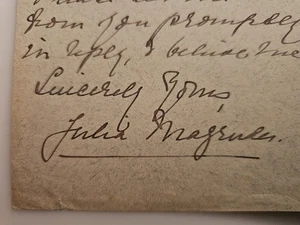 from you promptly
in reply, I believe me
Sincerely Yours,
Julia Magruder.